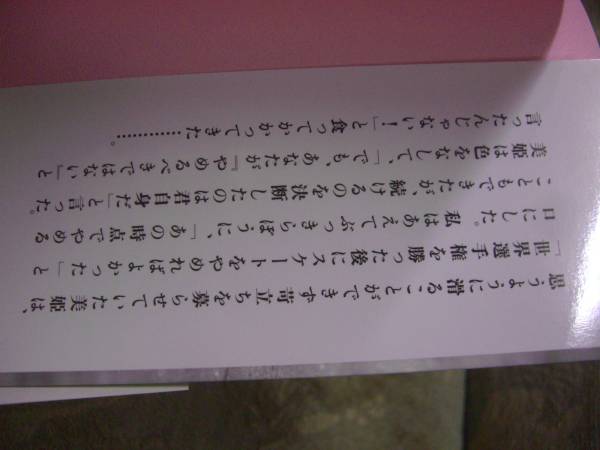 思うように滑ることができず苛立ちを募らせていた美姫は、
「世界選手権を勝った後にスケートをやめればよかった」と
口にした。私はあえてぶっきらぼうに、「あの時点でやめる
こともできたが、続けるのを決断したのは君自身だ」と言った。
美姫は色をなして、「でも、あなたが『やめるべきではない』と
言ったんじゃない！」と食ってかかってきた
…………。